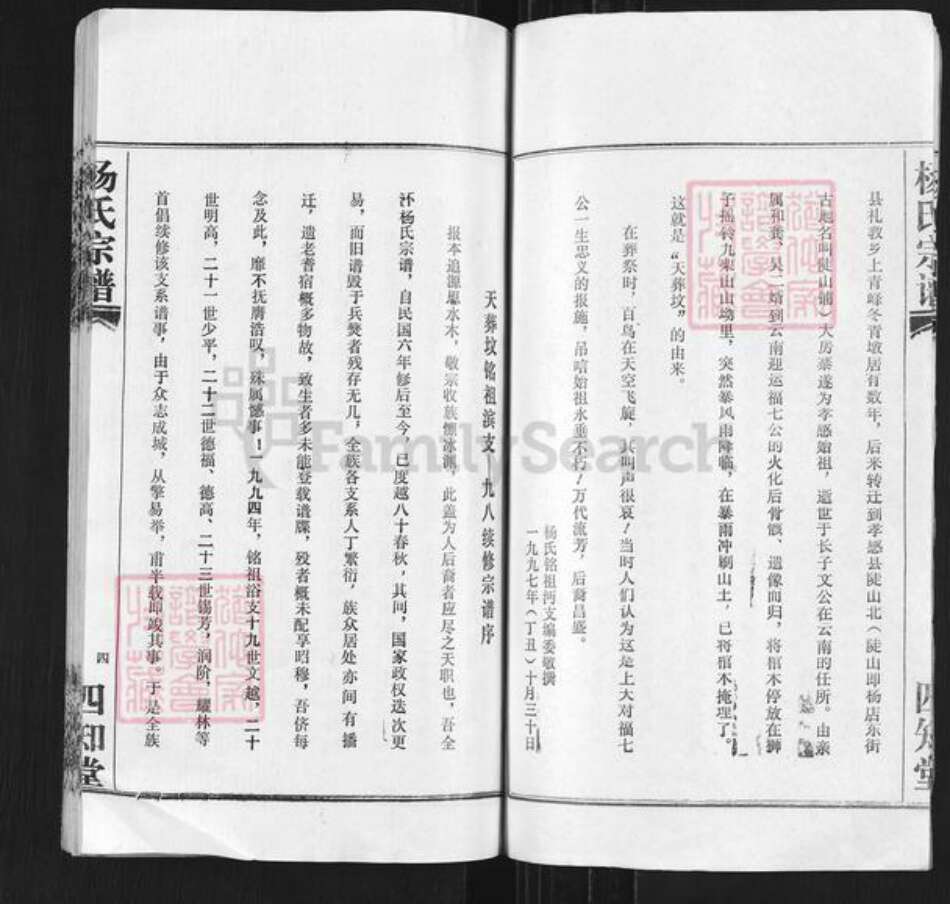 杨氏宗谱
四知堂
县礼教乡上青峰冬青墩居有数年，后来转迁到孝感县陡山北（陡山即杨店东街
古地名叫陡山铺）大房泰遂为孝感始祖，遗世于长子文公在云南的任所。由亲
属和龚、吴二婿到云南迎运福七公的火化后骨骸、遗像而归，将棺木停放在狮
子摇铃九束山山坳里，突然暴风雨降临，在暴雨冲刷山土，已将棺木掩埋了。
这就是“天葬坟”的由来。
在葬祭时，百鸟在天空飞旋，其叫声很哀！当时人们认为这是上天对福七
公一生忠义的报施，吊唁始祖永垂不朽！万代流芳，后裔昌盛。
杨氏铭祖沔支编委敬撰
一九九七年（丁丑）十月三十日
天葬坟铭祖滨支一九九八续修宗谱序
报本追源思水木，敬宗收族溯冰渊，此盖为人后裔者应尽之天职也，吾全
怀杨氏宗谱，自民国六年修后至今，已度越八十春秋，其间，国家政权迭次更
易，而旧谱毁于兵燹者残存无几，全族各支系人丁繁衍，族众居处亦间有播
迁，遗老耆宿概多物故，致生者多未能登载谱牒，殁者概未配享昭穆，吾侪每
念及此，靡不抚膺浩叹，殊属憾事！一九九四年，铭祖浴支十九世文越，二十
世明高，二十一世少平，二十二世德福、德高、二十三世锡芳，润阶，耀林等
首倡续修该支系谱事，由于众志成城，从擎易举，甫半载即竣其事。于是全族
杨氏宗谱
四
四知堂
FamilySearch